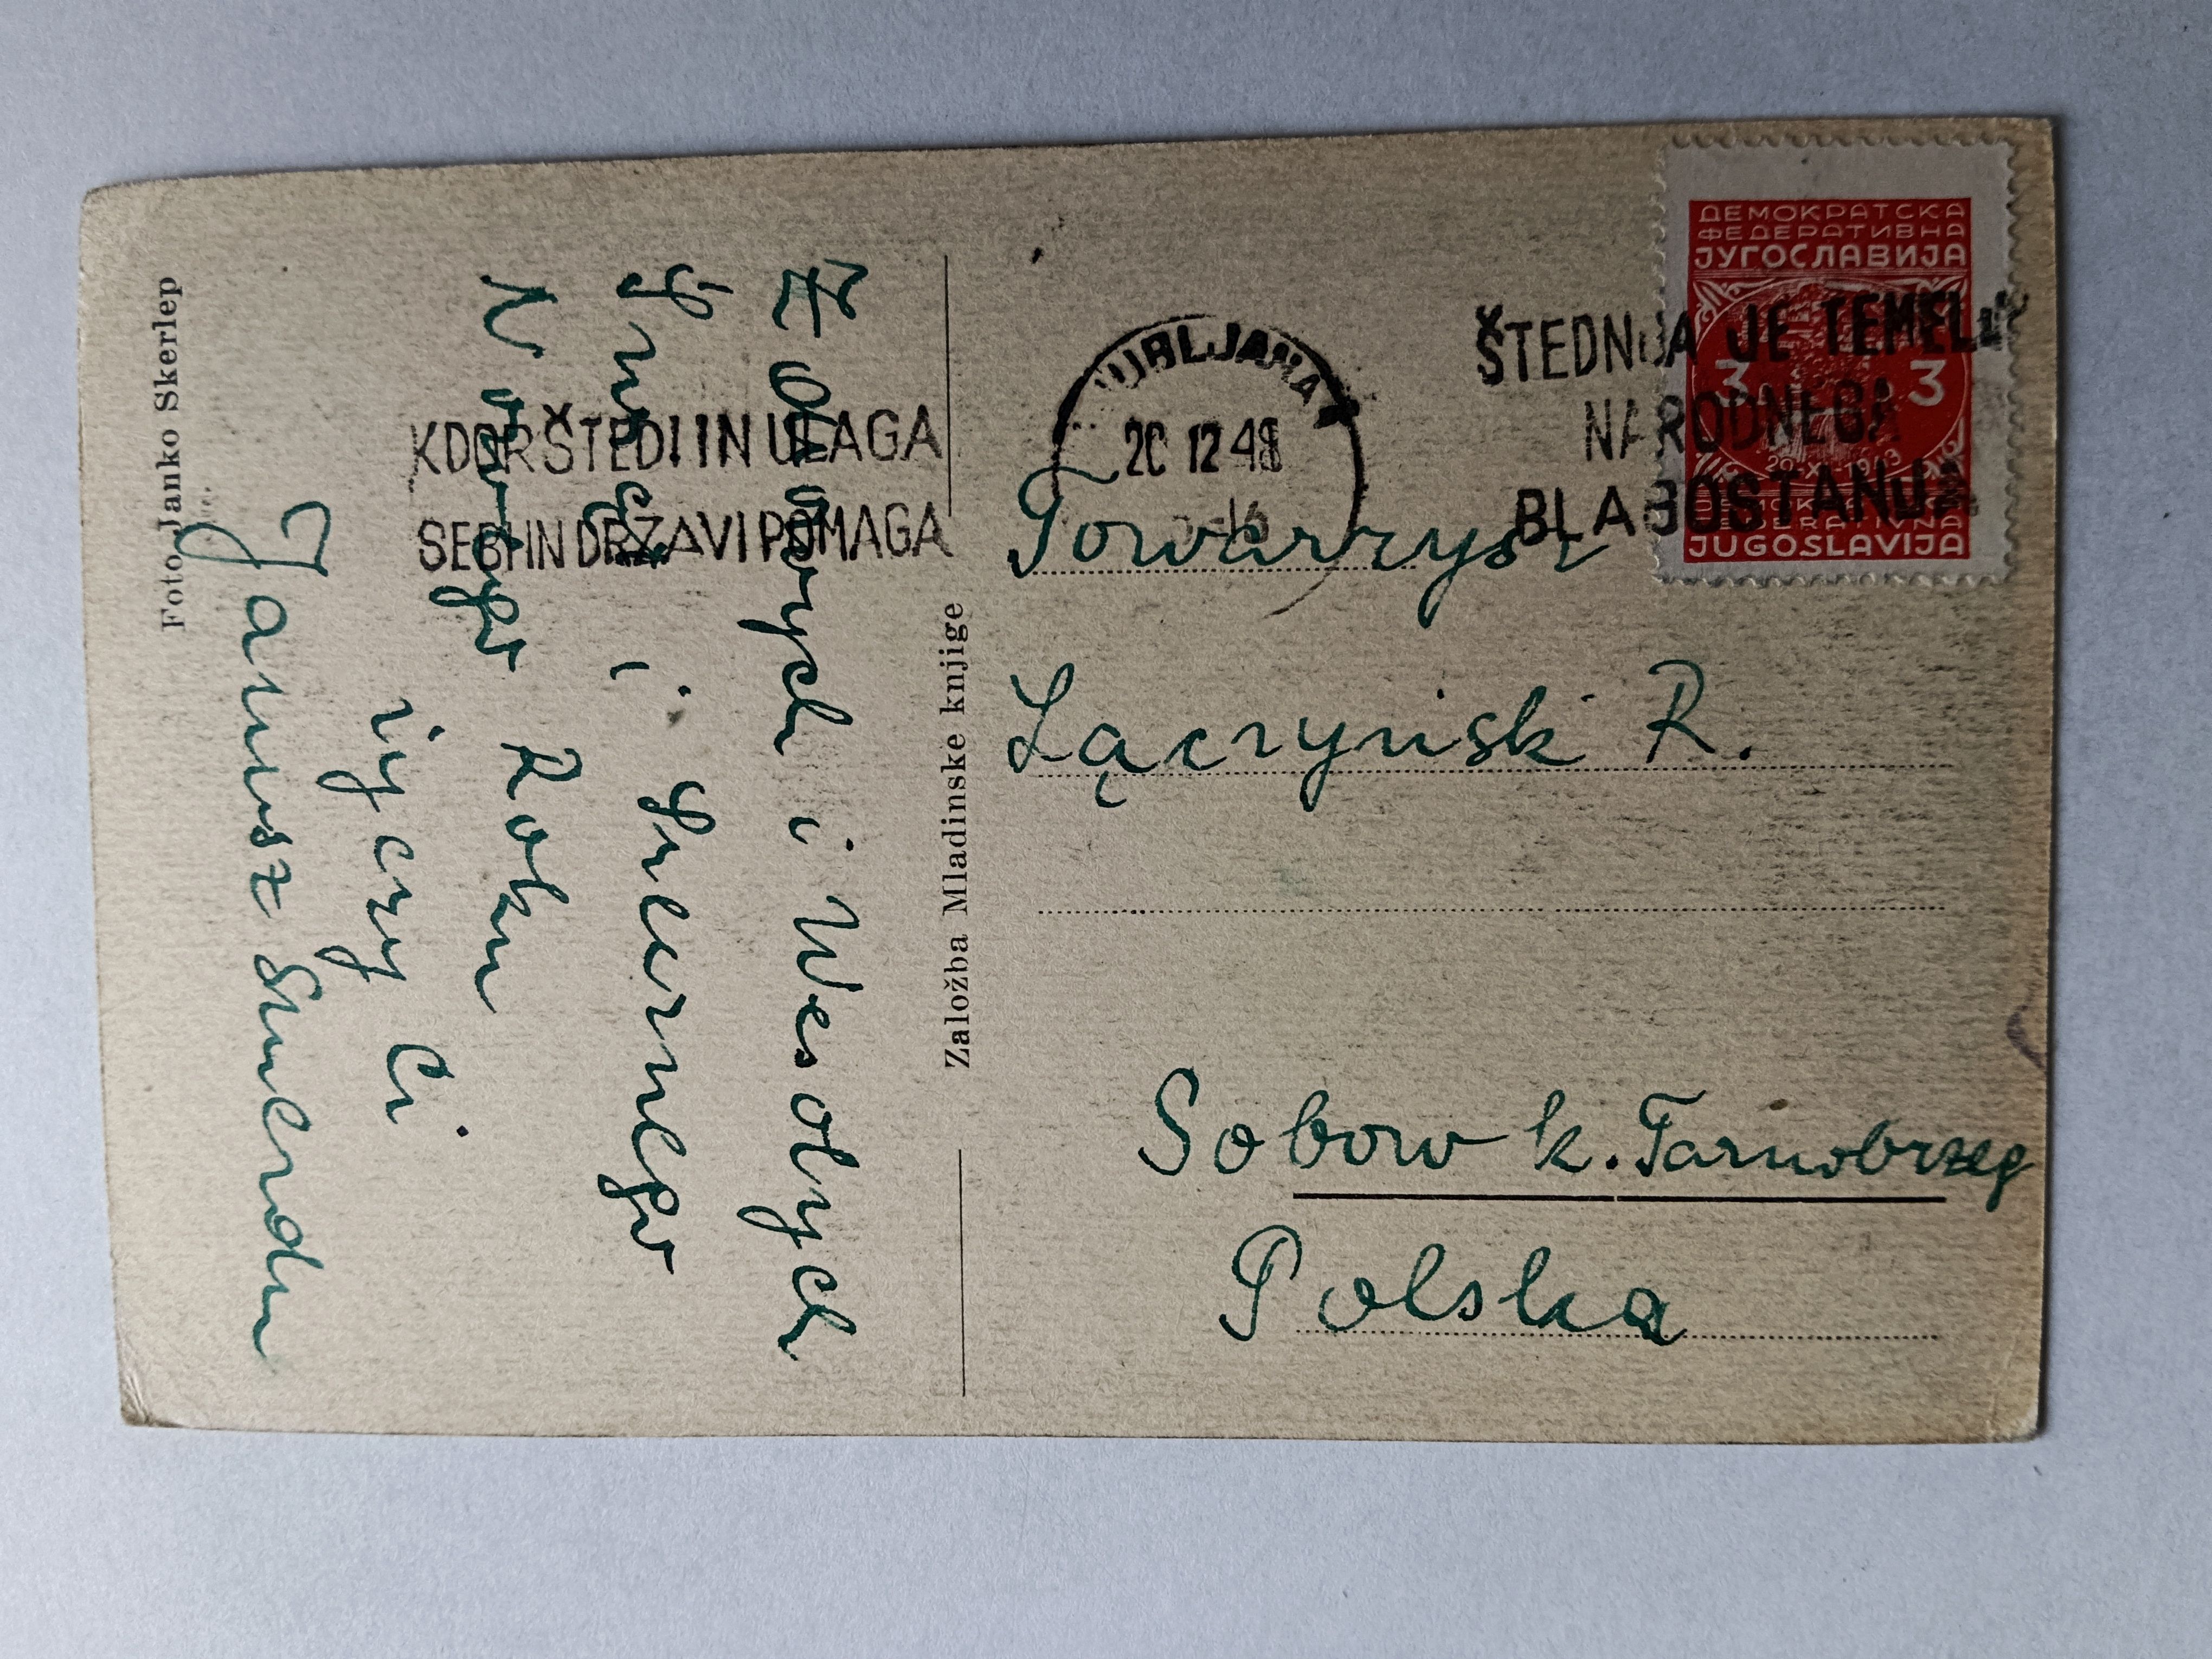 Foto Janko Skerlep
Założba Mladinske knjige
Zdrowych i Wesołych
Świąt i Szczęsnego
Nowego Roku
życzy Ci
Janusz
KDOR ŠTEDI IN ULAGA
SEBI IN DRŽAVI POMAGA
LJUBLJANA
20 12 48
ŠTEDNJA JE TEMELJ
NARODNEGA
BLAGOSTANJA
ДЕМОКРАТСКА
ФЕДЕРАТИВНА
ЈУГОСЛАВИЈА
3 3
29-XI-1943
DEMOKRATSKA
FEDERATIVNA
JUGOSLAVIJA
Towarzysz
Łączyński R.
Sobow k. Tarnobrzeg
Polska